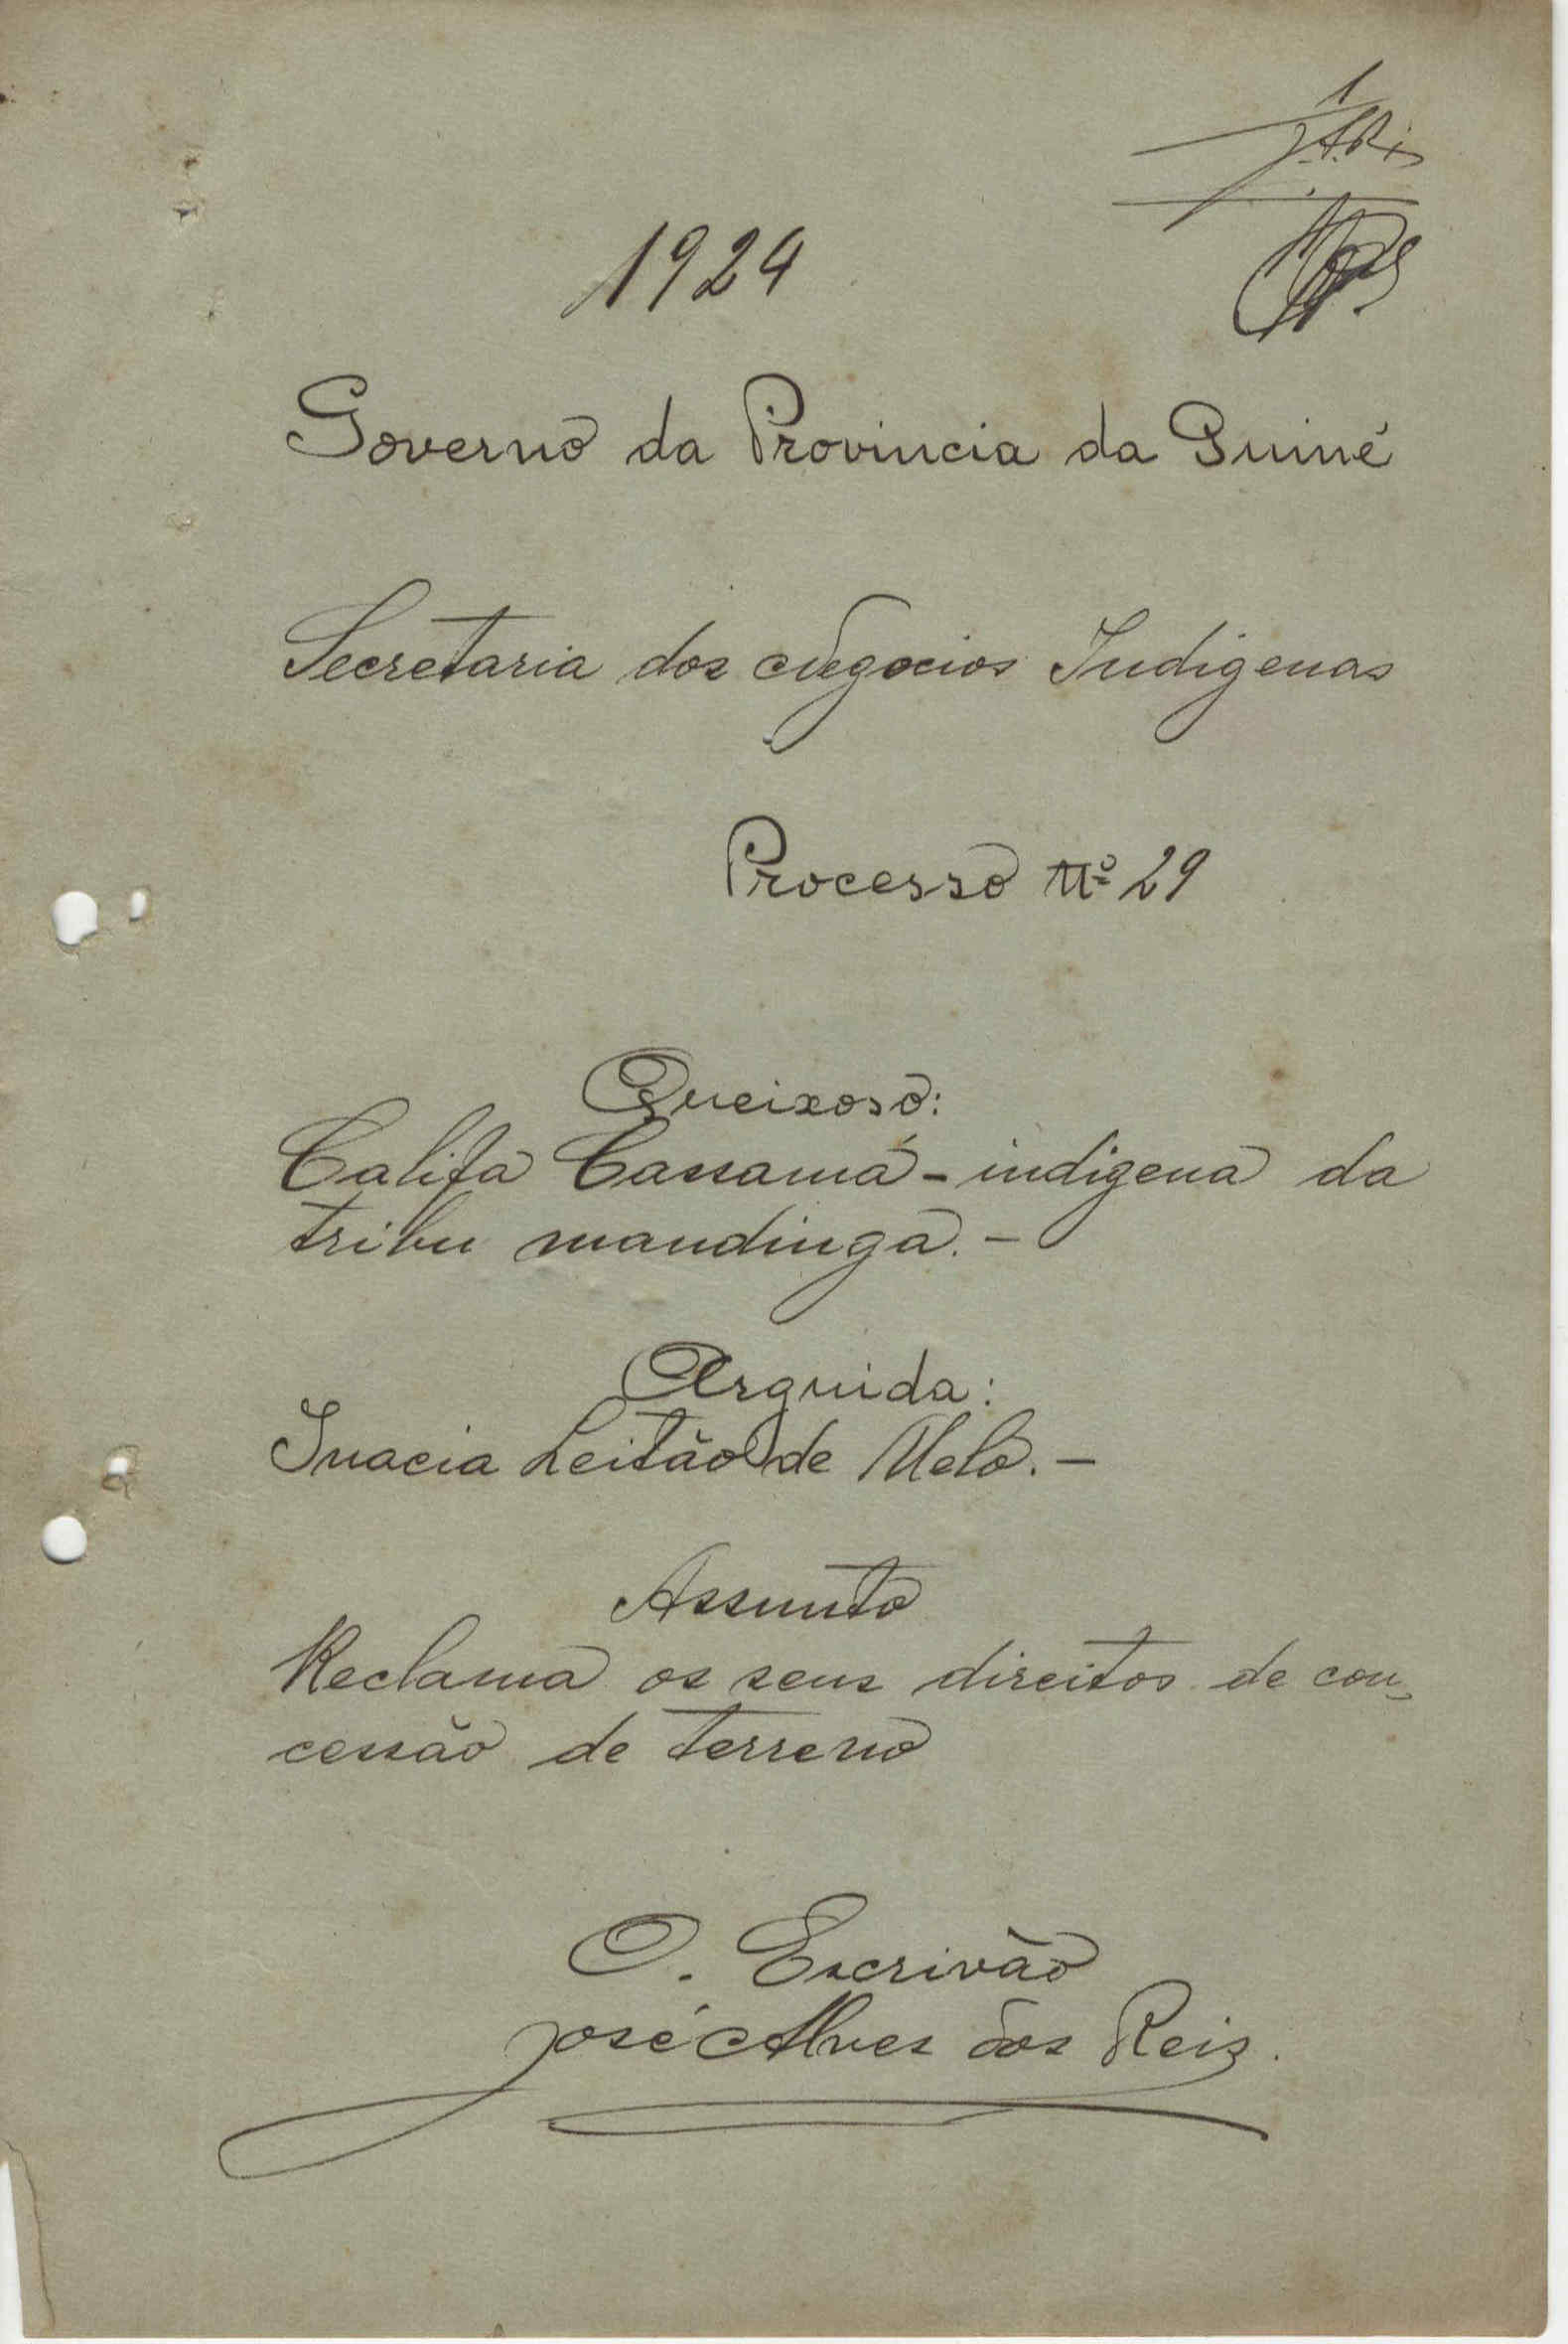 1
1924
Governo da Provincia da Guiné
Secretaria dos Negocios Indigenas
Processo Nº 29
Queixoso:
Califa Cassamá - indigena da
tribu mandinga. -
Arguida:
Inacia Leitão de Melo. -
Assunto
Reclama os seus direitos de con-
cessão de terreno
O. Escrivão
José Alves dos Reis.